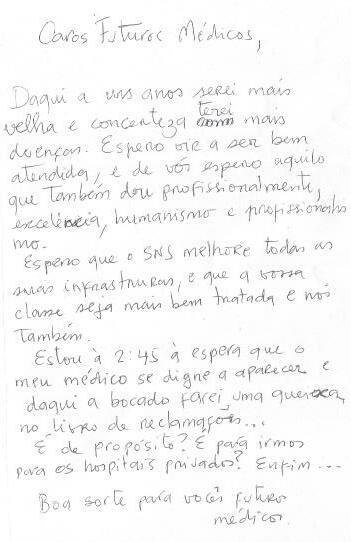 Caros Futuros Médicos,
Daqui a uns anos serei mais
velha e concerteza terei mais
doenças. Espero vir a ser bem
atendida, e de vós espero aquilo
que também dou profissionalmente,
excelência, humanismo e profissionalis
mo.
Espero que o SNS melhore todas as
suas infrastruras, e que a vossa
classe seja mais bem tratada e nós
também.
Estou à 2:45 à espera que o
meu médico se digne a aparecer e
daqui a bocado farei uma queixa
no livro de reclamações...
É de propósito? É para irmos
para os hospitais privados? Enfim...
Boa sorte para vocês futuros
médicos.